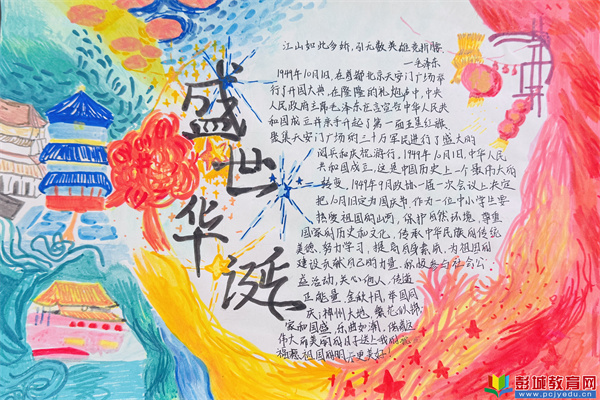 盛世华诞
江山如此多娇，引无数英雄竞折腰。
——毛泽东
1949年10月1日，在首都北京天安门广场举
行了开国大典，在隆隆的礼炮声中，中央
人民政府主席毛泽东宣告中华人民共
和国成立并亲手升起了第一面五星红旗
聚集天安门广场的三十万军民进行了盛大的
阅兵和庆祝游行，1949年10月1日，中华人民
共和国成立，这是中国历史上一个最伟大的
转变，1949年9月政协一届一次会议上决定
把10月1日定为国庆节，作为一位中小学生要
热爱祖国的山河，保护自然环境，尊重
国家的历史和文化，传承中华民族的传统
美德，努力学习，提高自身素质，为祖国的
建设贡献自己的力量，积极参与社会公
益活动，关心他人，传递
正能量，金秋十月，举国同
庆；神州大地，繁花似锦；
家和国盛，乐声如潮，
伟大而美丽的日子送上我的
福愿祖国明天更美好！
彭城教育网
www.pcjyedu.cn